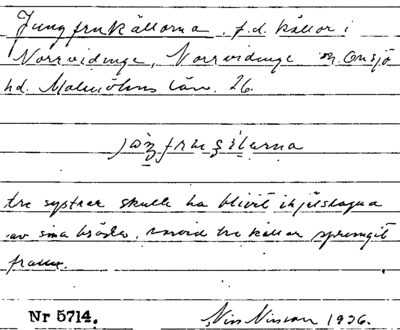 Jungfrukällorna, f.d. källor i
Norrvidinge, Norrvidinge sn Onsjö
hd. Malmöhus län. 26.
tre systrar skulle ha blivit ihjälslagna
av sina bröder, varvid tre källor sprungit
fram.
Nr 5714. Nils Nilsson 1936.